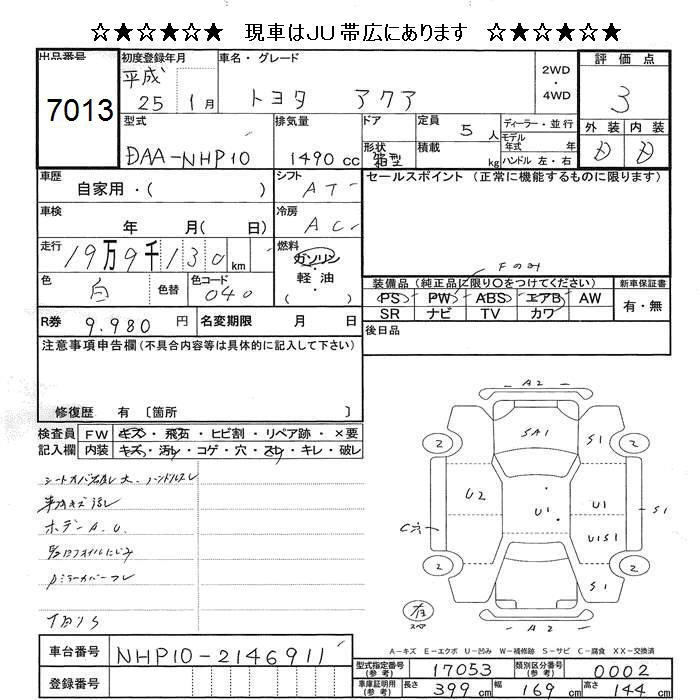 ☆★☆★☆★ 現車はJU帯広にあります ☆★☆★☆★
出品番号 初度登録年月 車名・グレード 2WD・4WD 評価点
7013 平成 25年 1月 トヨタ アクア 3
型式 排気量 ドア 定員 5人 ディーラー・並行 外装 内装
DAA-NHP10 1490cc 形状 箱型 積載 kg モデル年式 年 ハンドル 左・右 D D
車歴 自家用・( ) シフト AT セールスポイント (正常に機能するものに限ります)
車検 年 月( 日) 冷房 AC
走行 19万9千130km 燃料 ガソリン・軽油 ( )
Fのみ
色 白 色替 色コード 040 装備品(純正品に限り○をつけてください) 新車保証書
PS PW ABS エアB AW 有・無
SR ナビ TV カワ
R券 9.980円 名変期限 月 日 後日品
注意事項申告欄(不具合内容等は具体的に記入して下さい)
修復歴 有 〔箇所 〕
検査員 FW キズ・飛石・ヒビ割・リペア跡・×要
記入欄 内装 キズ・汚レ・コゲ・穴・スレ・キレ・破レ
ボデーA.U.
A2
SA1 S1
2 2
U2 U1 U1 S1
U1S1
2 2
S1
スペア
A2
A-キズ E-エクボ U-凹み W-補修跡 S-サビ C-腐食 XX-交換済
車台番号 NHP10-2146911
登録番号
型式指定番号(参考) 17053 類別区分番号(参考) 0002
車庫証明用(参考) 長さ 399cm 幅 169cm 高さ 144cm